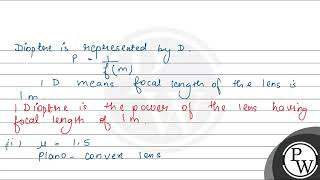 Dioptre is represented by D.
P = 1/f(m)
1 D means focal length of the lens is
1 m
1 Dioptre is the power of the lens having
focal length of 1 m.
(i) μ = 1.5
plano-convex lens
PW